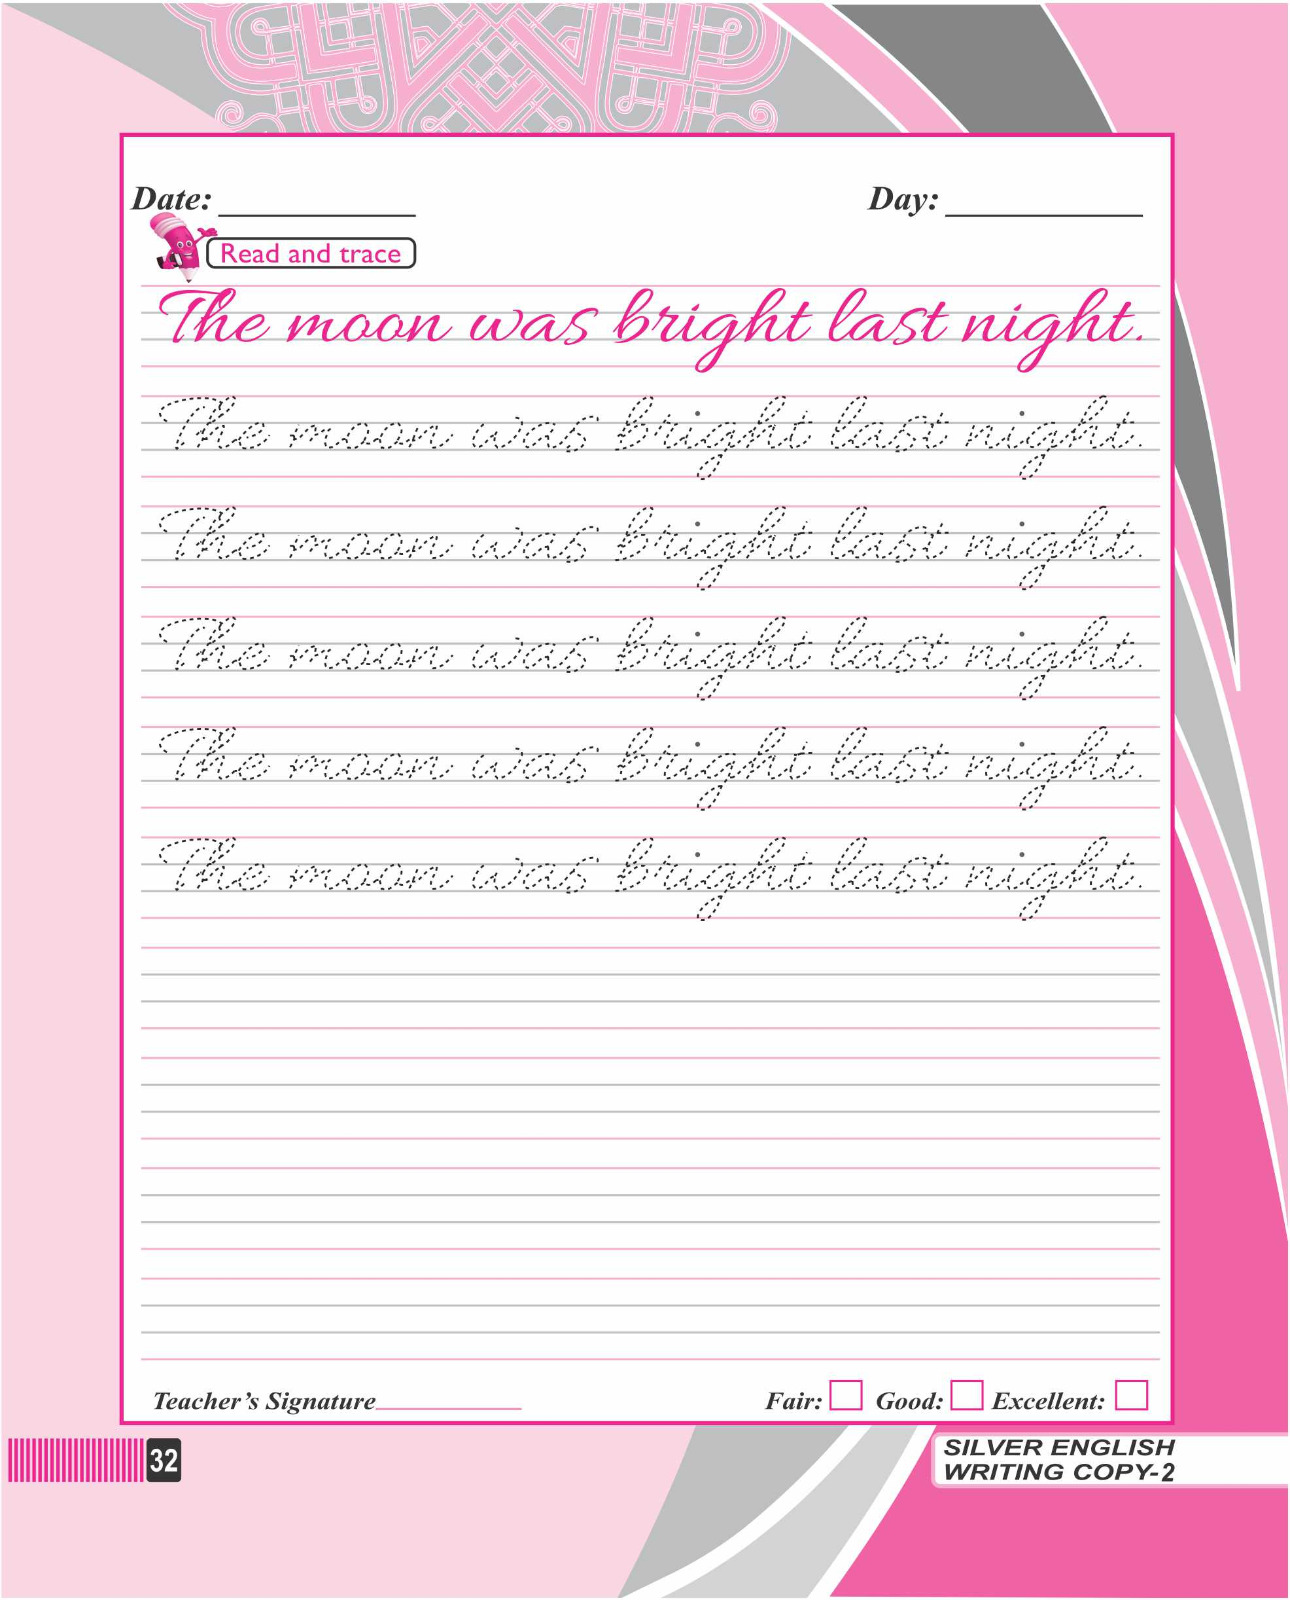 Date: Day:
Read and trace
The moon was bright last night.
The moon was bright last night.
The moon was bright last night.
The moon was bright last night.
The moon was bright last night.
The moon was bright last night.
Teacher's Signature Fair: Good: Excellent:
32
SILVER ENGLISH
WRITING COPY-2